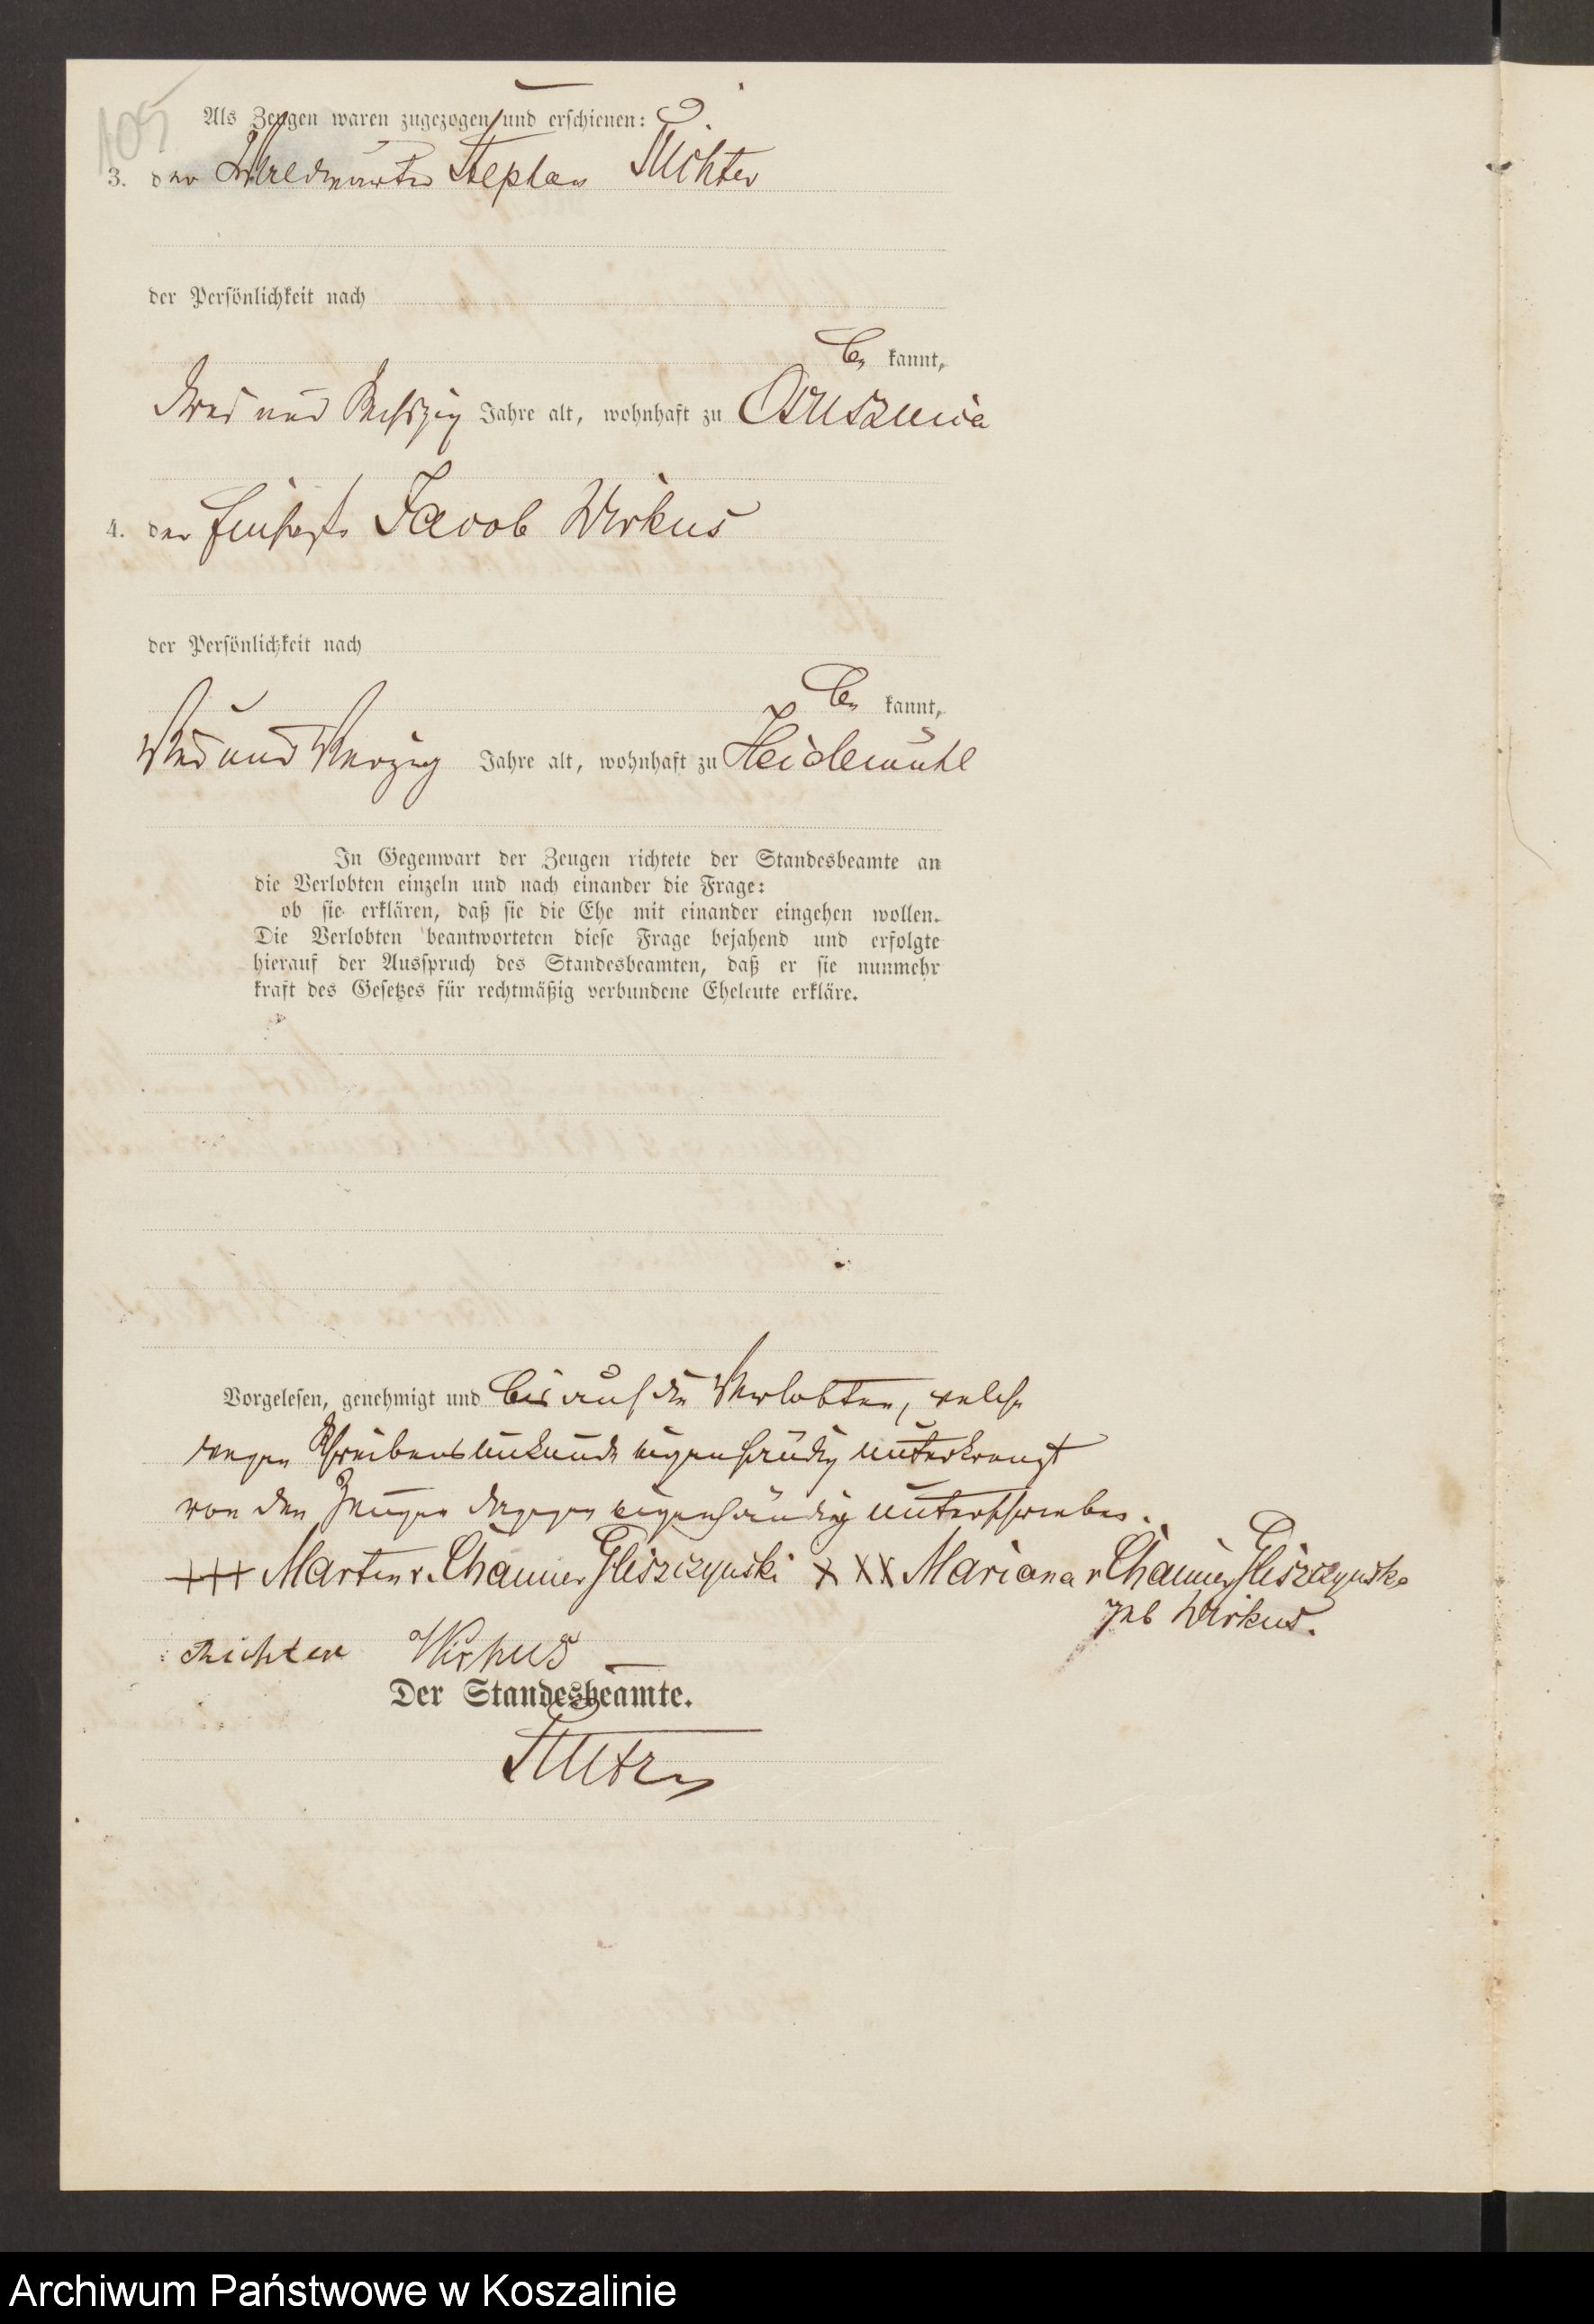 105
Als Zeugen waren zugezogen und erschienen:
3. der Stephan Richter
der Persönlichkeit nach
be kannt,
drei und sechszig Jahre alt, wohnhaft zu Ossusznica
4. der Jacob Wirkus
der Persönlichkeit nach
be kannt,
vier und vierzig Jahre alt, wohnhaft zu Heidemühl
In Gegenwart der Zeugen richtete der Standesbeamte an
die Verlobten einzeln und nach einander die Frage:
ob sie erklären, daß sie die Ehe mit einander eingehen wollen.
Die Verlobten beantworteten diese Frage bejahend und erfolgte
hierauf der Ausspruch des Standesbeamten, daß er sie nunmehr
kraft des Gesetzes für rechtmäßig verbundene Eheleute erkläre.
Vorgelesen, genehmigt und bis auf die Verlobten, welche
wegen Schreibensunkunde eigenhändig unterkreuzt
von den Zeugen dagegen eigenhändig unterschrieben.
+++ Martin v. Chamier Gliszczynski XXX Mariana v Chamier Gliszczynska
geb Wirkus.
Richter Wirkus
Der Standesbeamte.
Archiwum Państwowe w Koszalinie